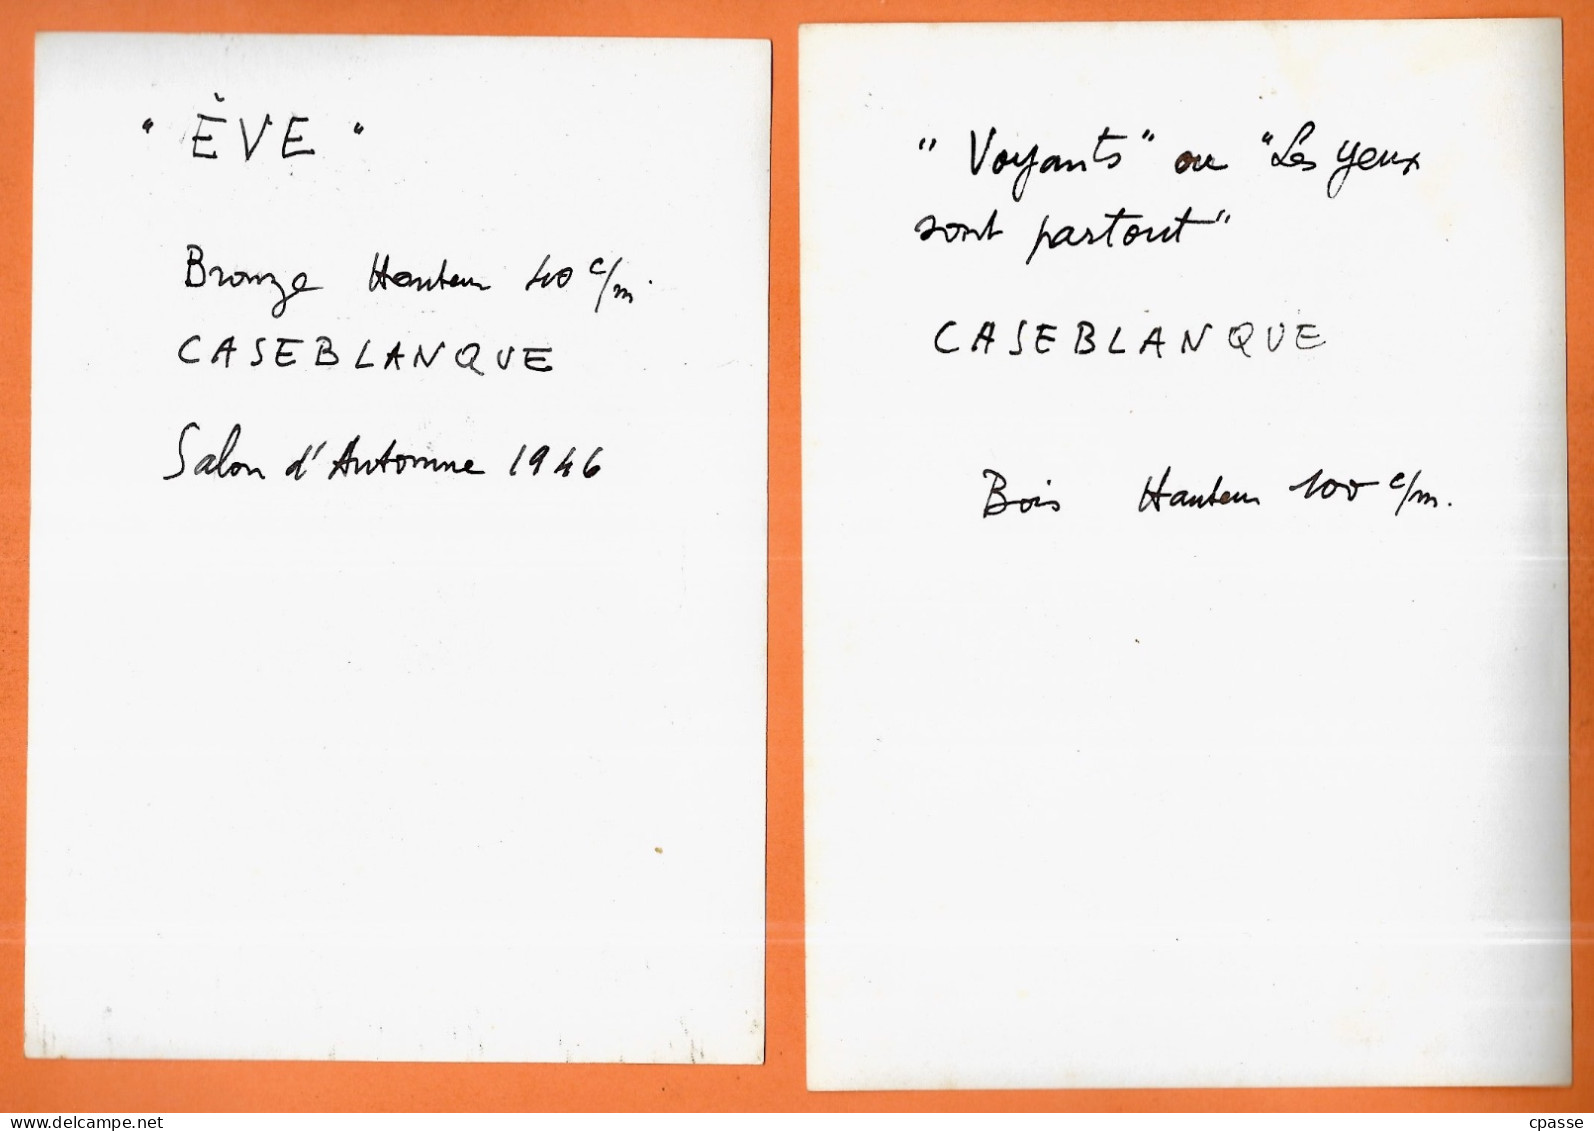 "ÈVE"
Bronze Hauteur 40 c/m.
CASEBLANQUE
Salon d'Automne 1946
"Voyants" ou "Les yeux
sont partout"
CASEBLANQUE
Bois Hauteur 100 c/m.
www.delcampe.net
cpasse